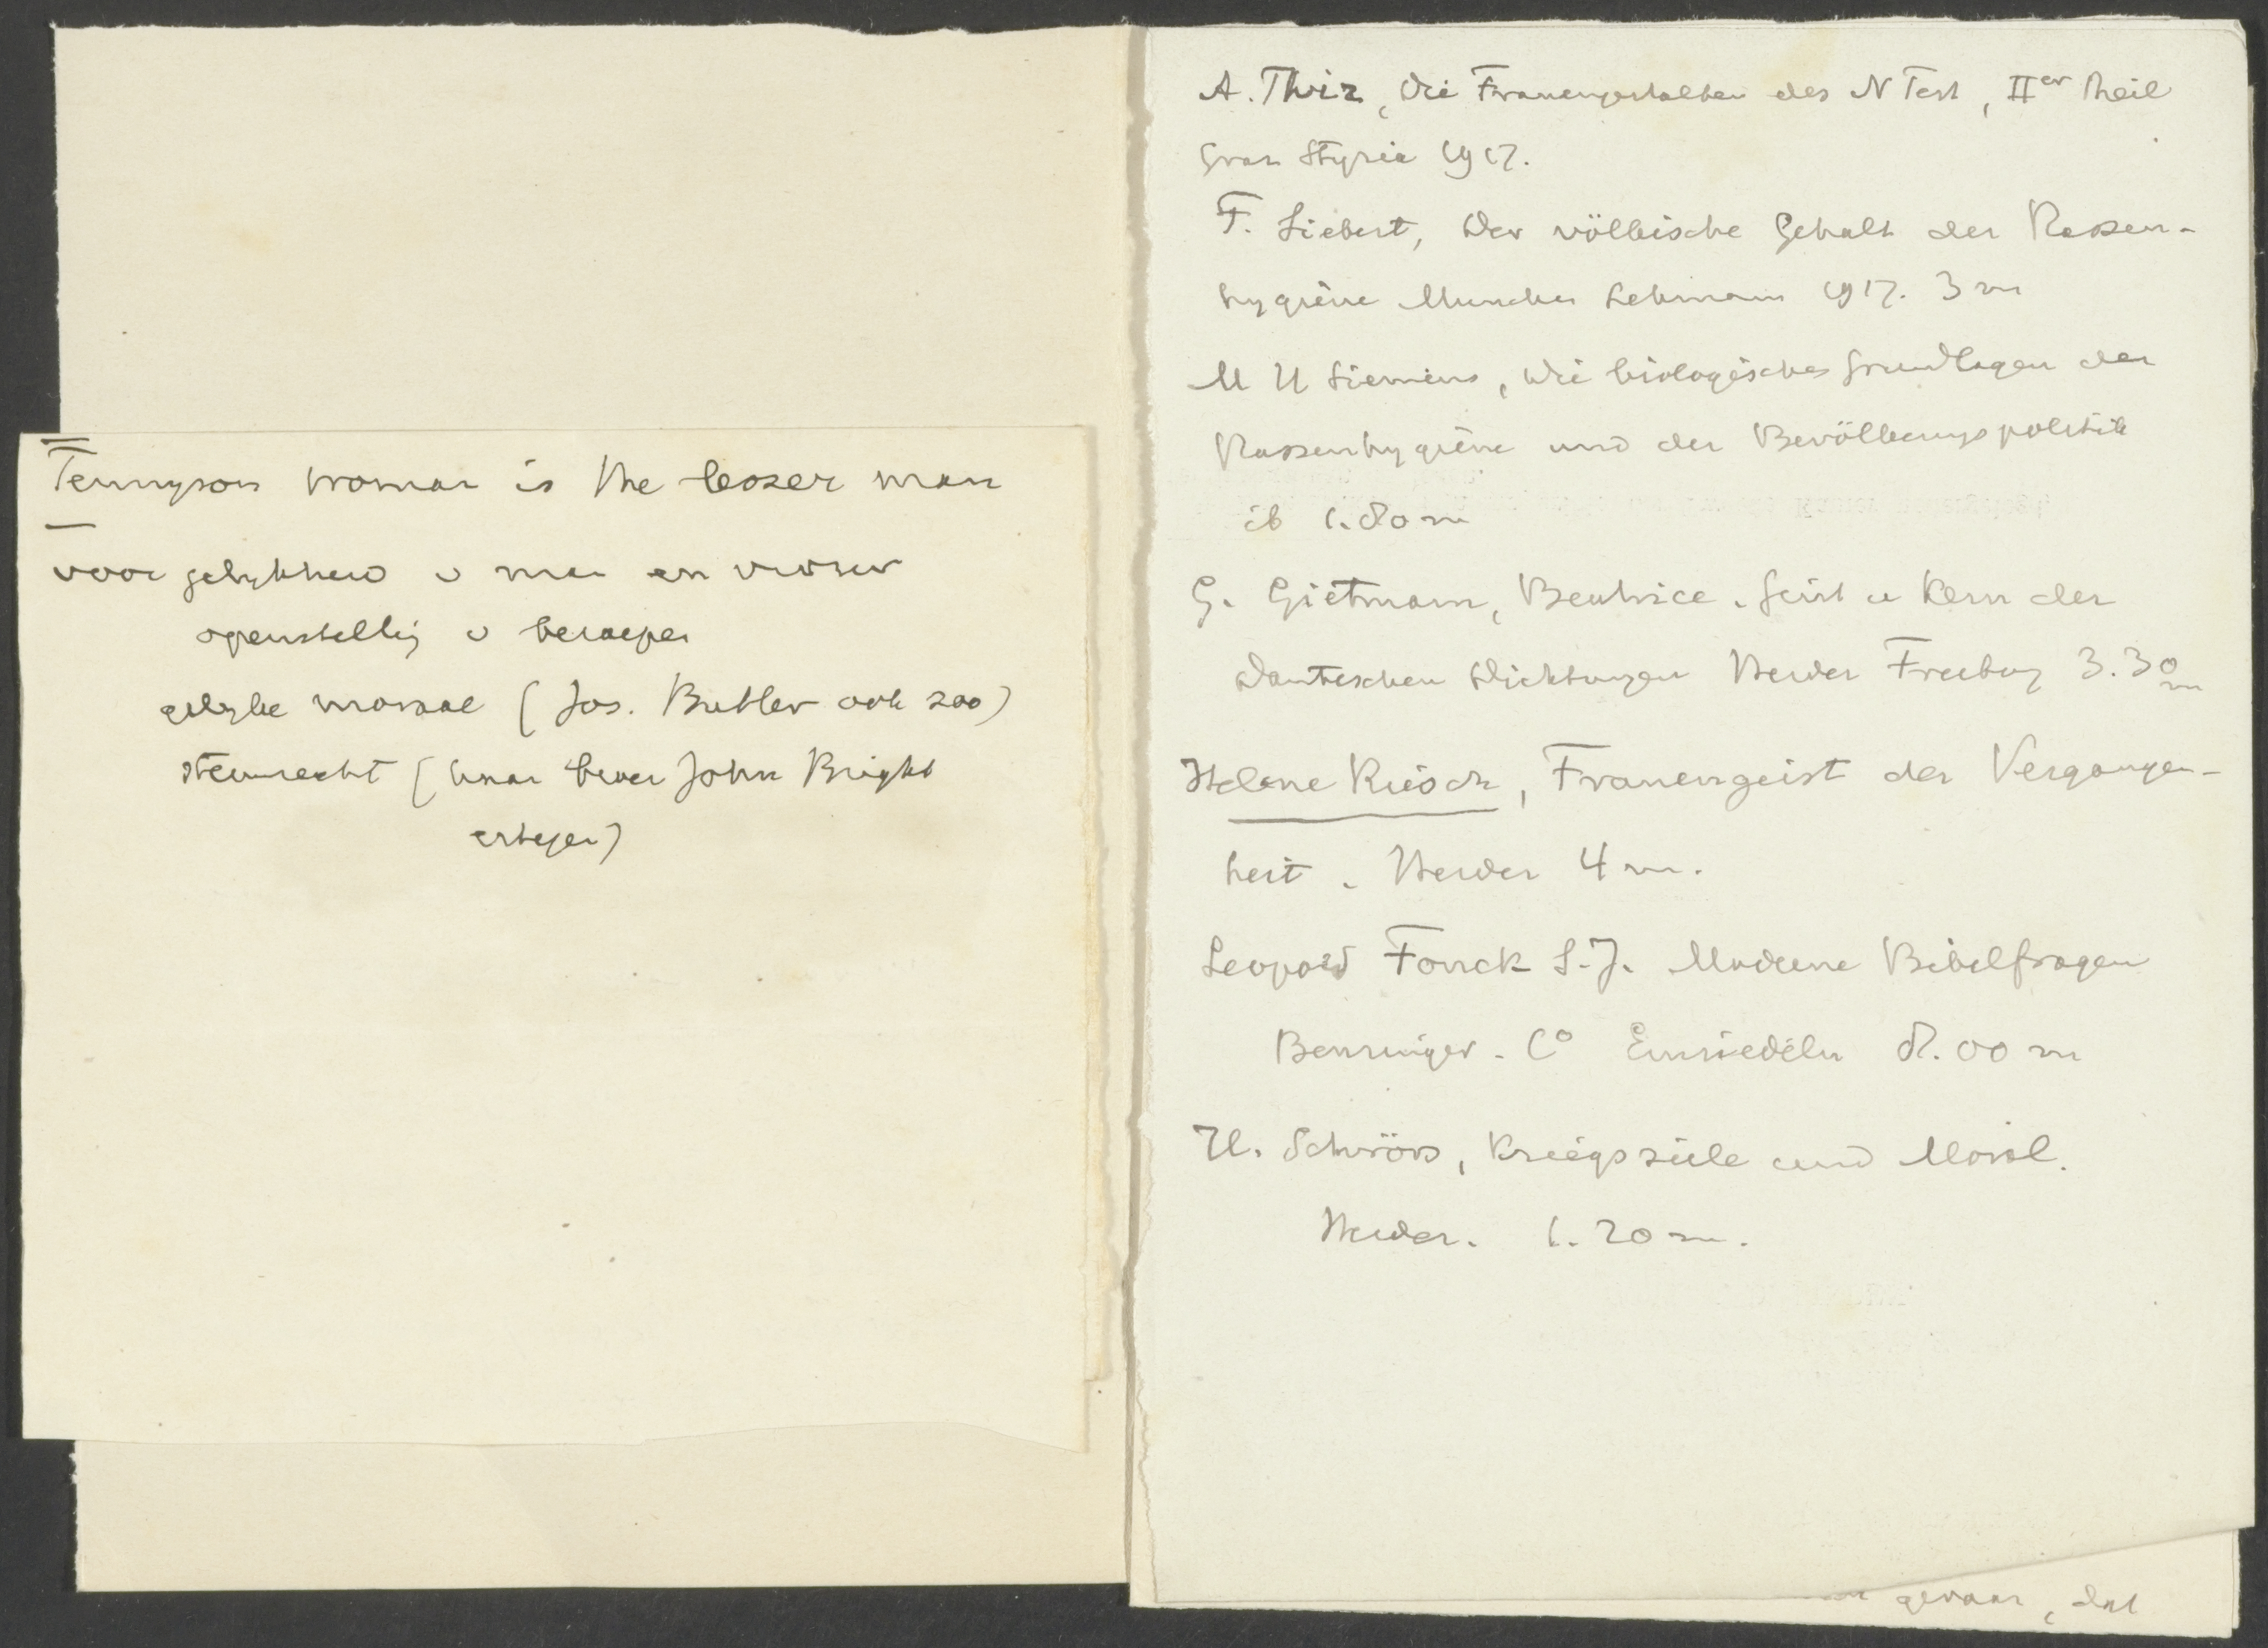 Tennyson woman is the lesser man
voor gelykheid v man en vrouw
openstellig v beroepen
gelyke moraal (Jos. Butler ook zoo)
stemrecht (haar broer John Bright
ertegen)
A. Thir, Die Frauengestalten des N Test, IIer Theil
Graz Styria 1917.
F. Siebert, Der völkische Gehalt der Rassen-
hygiène Munchen Lehmann 1917. 3 m
H W Siemens, Die biologischen Grundlagen der
Rassenhygiène und der Bevölkerungspolitik
ib 1.80 m
G. Gietmann, Beatrice. Geist u Kern der
Danteschen Dichtungen Herder Freiburg 3.30 m
Helene Riesch, Frauengeist der Vergangen-
heit. Herder 4 m.
Leopold Fonck S.J. Moderne Bibelfragen
Benziger. Co Einsiedeln 8.00 m
H. Schrörs, Kriegsziele und Moral.
Herder. 1.20 m.
gevaar, dat